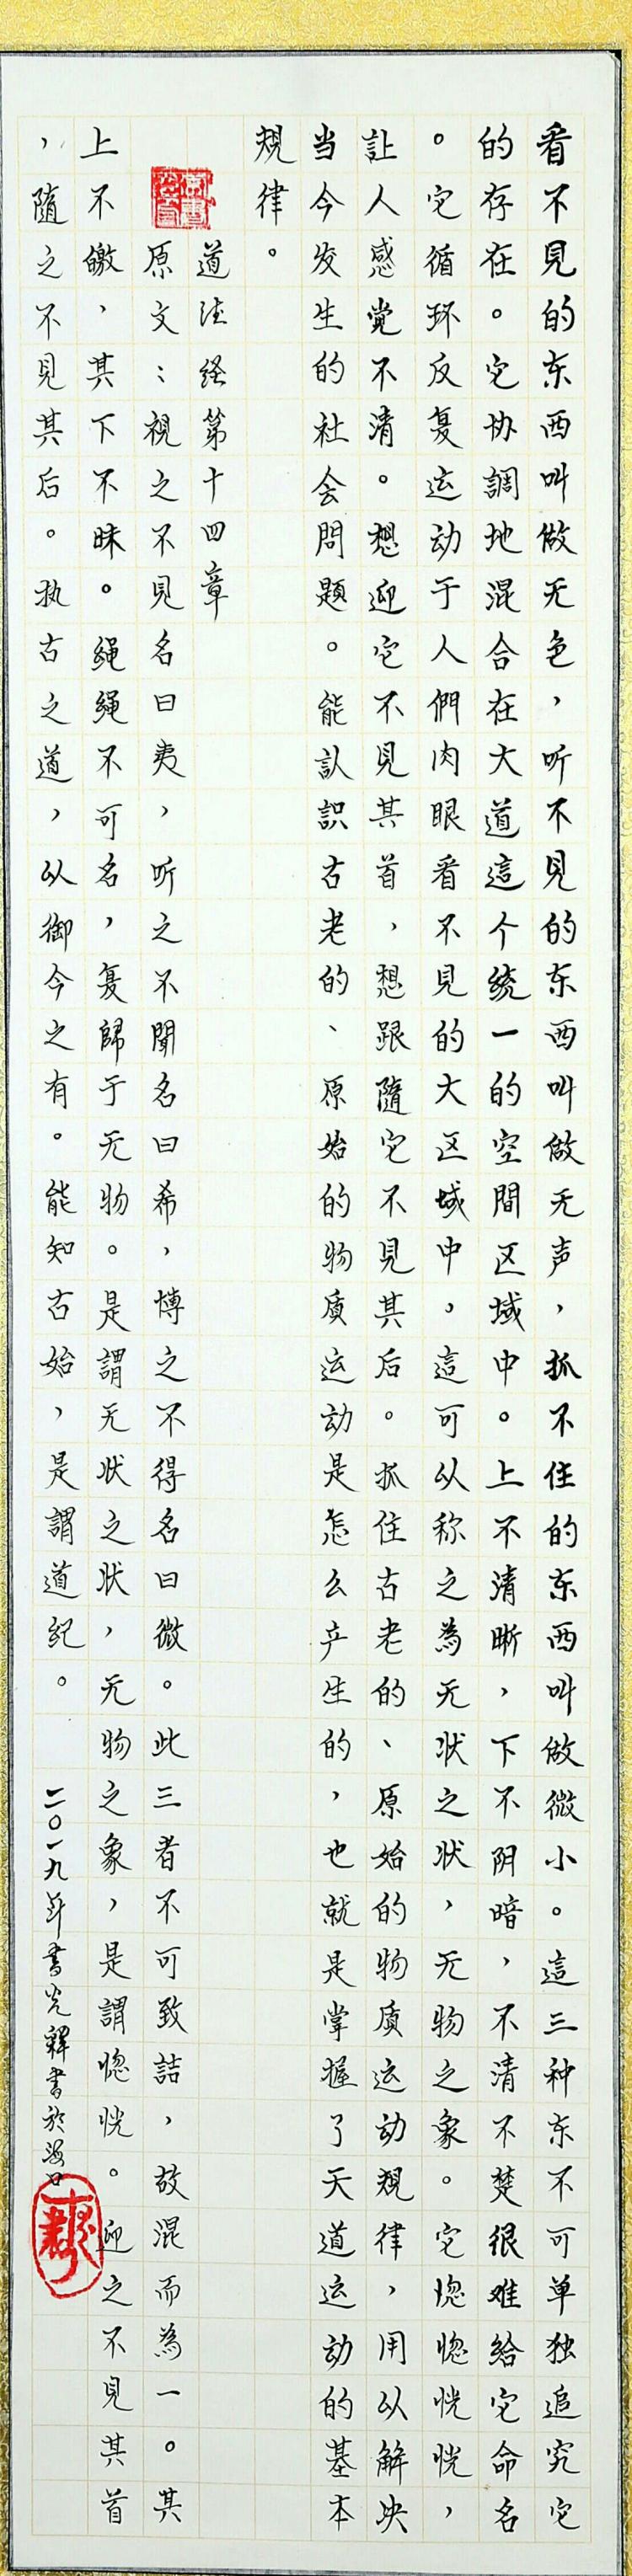 看不見的东西叫做无色，听不見的东西叫做无声，抓不住的东西叫做微小。這三种东不可单独追究它
的存在。它协調地混合在大道這个统一的空間区域中。上不清晰，下不阴暗，不清不楚很难给它命名
。它循环反复运动于人們肉眼看不見的大区域中。這可以称之為无状之状，无物之象。它惚惚恍恍，
让人感觉不清。想迎它不見其首，想跟隨它不見其后。抓住古老的、原始的物质运动規律，用以解决
当今发生的社会問題。能认識古老的、原始的物质运动是怎么产生的，也就是掌握了天道运动的基本
規律。
道德经第十四章
原文：視之不見名曰夷，听之不聞名曰希，博之不得名曰微。此三者不可致詰，故混而為一。其
上不皦，其下不昧。绳绳不可名，复歸于无物。是謂无状之状，无物之象，是謂惚恍。迎之不見其首
，隨之不見其后。执古之道，以御今之有。能知古始，是謂道紀。
二〇一九年書光釋書於海口